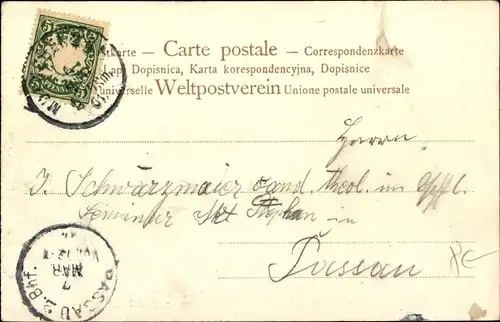 Carte postale — Correspondenzkarte
Lap, Dopisnica, Karta korespondencyjna, Dopisnice
universelle Weltpostverein Unione postale universale
Herrn
J. Schwarzmaier Cand. theol. im
Seminar Skt Stephan in
Passau
PASSAU 2. Bhf.
7
MAR